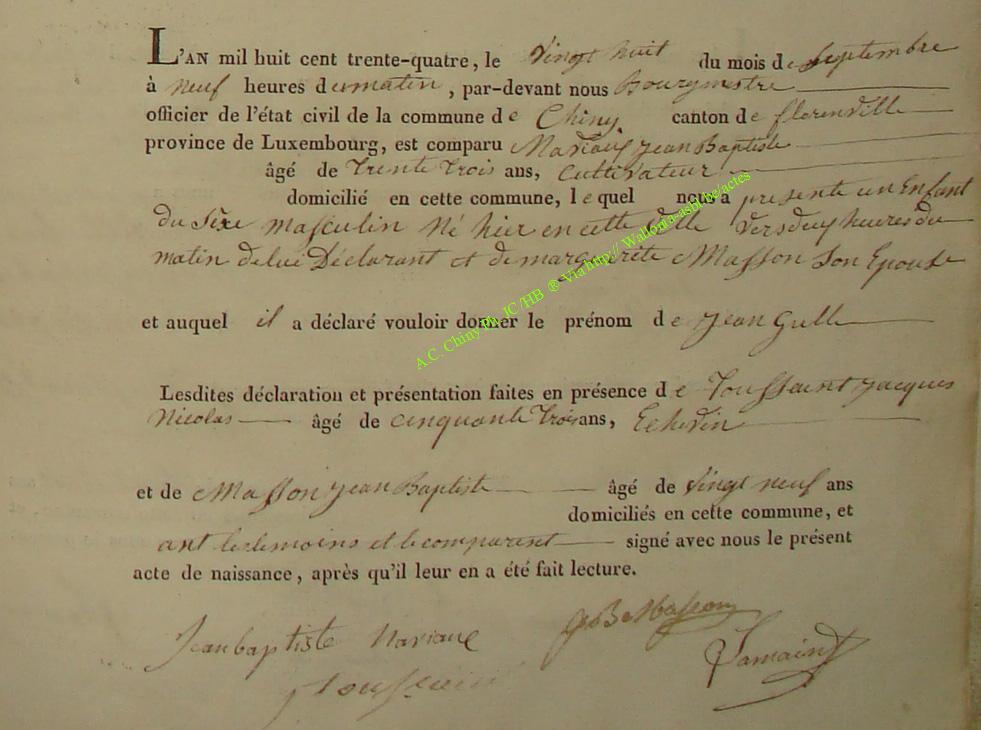 L'AN mil huit cent trente-quatre, le vingt huit du mois de Septembre
à neuf heures du matin, par-devant nous Bourgmestre
officier de l'état civil de la commune de Chiny canton de florenville
province de Luxembourg, est comparu Mariaux jean Baptiste
âgé de trente trois ans, Cultivateur
domicilié en cette commune, lequel nous a présenté un Enfant
du sèxe masculin né hier en cette ville vers deux heures du
matin de lui Déclarant et de marguerite Masson son Epouse
et auquel il a déclaré vouloir donner le prénom de jean
Lesdites déclaration et présentation faites en présence de Toussaint jacques
Nicolas âgé de cinquante trois ans, Echevin
et de Masson jean Baptiste âgé de vingt neuf ans
domiciliés en cette commune, et
ont les temoins et le comparent signé avec nous le présent
acte de naissance, après qu'il leur en a été fait lecture.
Jean baptiste Mariaux
JB Masson
Toussaint
A.C. Chiny Ph. JC /HB ® Via http:// Wallonia-asbl.be/actes